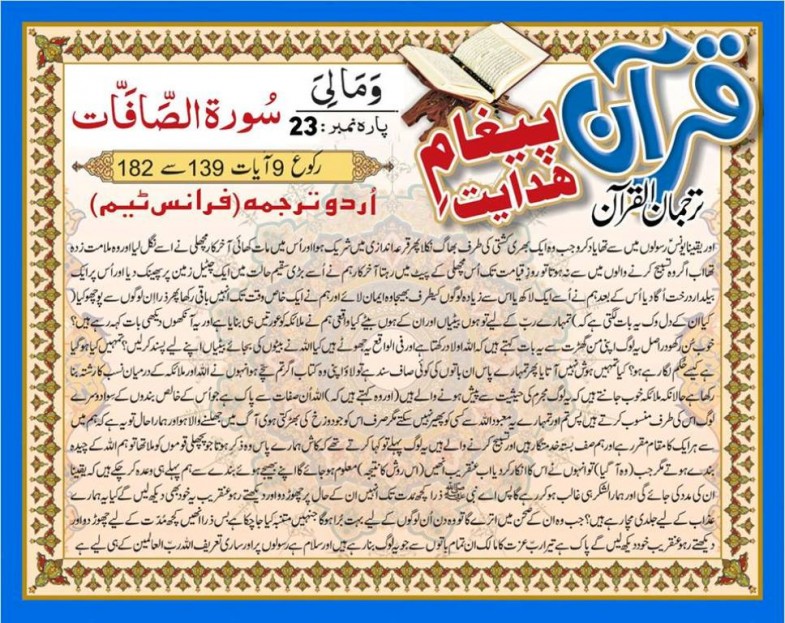 قرآن
پیغامِ
ھدایت
ترجمان القرآن
وَمَالِیَ
پارہ نمبر: 23
سُورۃ الصَّافَّات
رکوع 9 آیات 139 سے 182
اُردو ترجمہ (فرانس ٹیم)
اور یقینا یونسؑ رسولوں میں سے تھا یاد کرو جب وہ ایک بھری کشتی کی طرف بھاگ نکلا پھر قرعہ اندازی میں شریک ہوا اور اُس میں مات کھائی آخر کار مچھلی نے اسے نگل لیا اور وہ ملامت زدہ
تھا اب اگر وہ تسبیح کرنے والوں میں سے نہ ہوتا تو روزِ قیامت تک اُس مچھلی کے پیٹ میں رہتا آخر کار ہم نے اُسے بڑی سقیم حالت میں ایک چٹیل زمین پر پھینک دیا اور اُس پر ایک
بیلدار درخت اُگا دیا اُس کے بعد ہم نے اُسے ایک لاکھ یا اس سے زیادہ لوگوں کیطرف بھیجا وہ ایمان لائے اور ہم نے ایک خاص وقت تک انہیں باقی رکھا پھر ذرا اِن لوگوں سے پوچھو کیا (
کیا اِن کے دل کو یہ بات لگتی ہے کہ ) تمہارے ربّ کے لیے تو ہوں بیٹیاں اور ان کے ہوں بیٹے کیا واقعی ہم نے ملائکہ کو عورتیں ہی بنایا ہے اور یہ آنکھوں دیکھی بات کہہ رہے ہیں؟
خوب سُن رکھو دراصل یہ لوگ اپنی من گھڑت سے یہ بات کہتے ہیں کہ اللہ اولاد رکھتا ہے اور فی الواقع یہ جھوٹے ہیں کیا اللہ نے بیٹوں کی بجائے بیٹیاں اپنے لیے پسند کر لیں؟ تمہیں کیا ہو گیا
ہے کیسے حکم لگا رہے ہو؟ کیا تمہیں ہوش نہیں آتا یا پھر تمہارے پاس ان باتوں کی کوئی صاف سند ہے تو لاؤ اپنی وہ کتاب اگر تم سچے ہو انہوں نے اللہ اور ملائکہ کے درمیان نسب کا رشتہ بنا
رکھا ہے حالانکہ ملائکہ خوب جانتے ہیں کہ یہ لوگ مجرم کی حیثیت سے پیش ہونے والے ہیں ( اور وہ کہتے ہیں کہ ) اللہ اُن صفات سے پاک ہے جو اُس کے خالص بندوں کے سوا دوسرے
لوگ اس کی طرف منسوب کرتے ہیں پس تم اور تمہارے یہ معبود اللہ سے کسی کو پھیر نہیں سکتے مگر صرف اس کو جو دوزخ کی بھڑکتی ہوئی آگ میں جھلسنے والا ہو اور ہمارا حال تو یہ ہے کہ ہم میں
سے ہر ایک کا مقام مقرر ہے اور ہم صف بستہ خدمتگار ہیں اور تسبیح کرنے والے ہیں یہ لوگ پہلے تو کہا کرتے تھے کہ کاش ہمارے پاس وہ ذکر ہوتا جو پچھلی قوموں کو ملا تھا تو ہم اللہ کے چیدہ
بندے ہوتے مگر جب (وہ آ گیا) تو انہوں نے اس کا انکار کر دیا اب عنقریب اُنہیں (اس روش کا نتیجہ) معلوم ہو جائے گا اپنے بھیجے ہوئے بندے سے ہم پہلے ہی وعدہ کر چکے ہیں کہ یقینا
ان کی مدد کی جائے گی اور ہمارا لشکر ہی غالب ہو کر رہے گا پس اے نبی ﷺ ذرا کچھ مدت تک انہیں ان کے حال پر چھوڑ دو اور دیکھتے رہو عنقریب یہ خود بھی دیکھ لیں گے کیا یہ ہمارے
عذاب کے لیے جلدی مچا رہے ہیں؟ جب وہ ان کے صحن میں اترے گا تو وہ دن اُن لوگوں کے لیے بہت بُرا ہوگا جنہیں متنبّہ کیا جا چکا ہے بس ذرا انھیں کچھ مُدّت کے لیے چھوڑ دو اور
دیکھتے رہو عنقریب خود دیکھ لیں گے پاک ہے تیرا ربّ عزت کا مالک اُن تمام باتوں سے جو یہ لوگ بنا رہے ہیں اور سلام ہے رسولوں پر اور ساری تعریف اللہ ربّ العالمین کے ہی لیے ہے